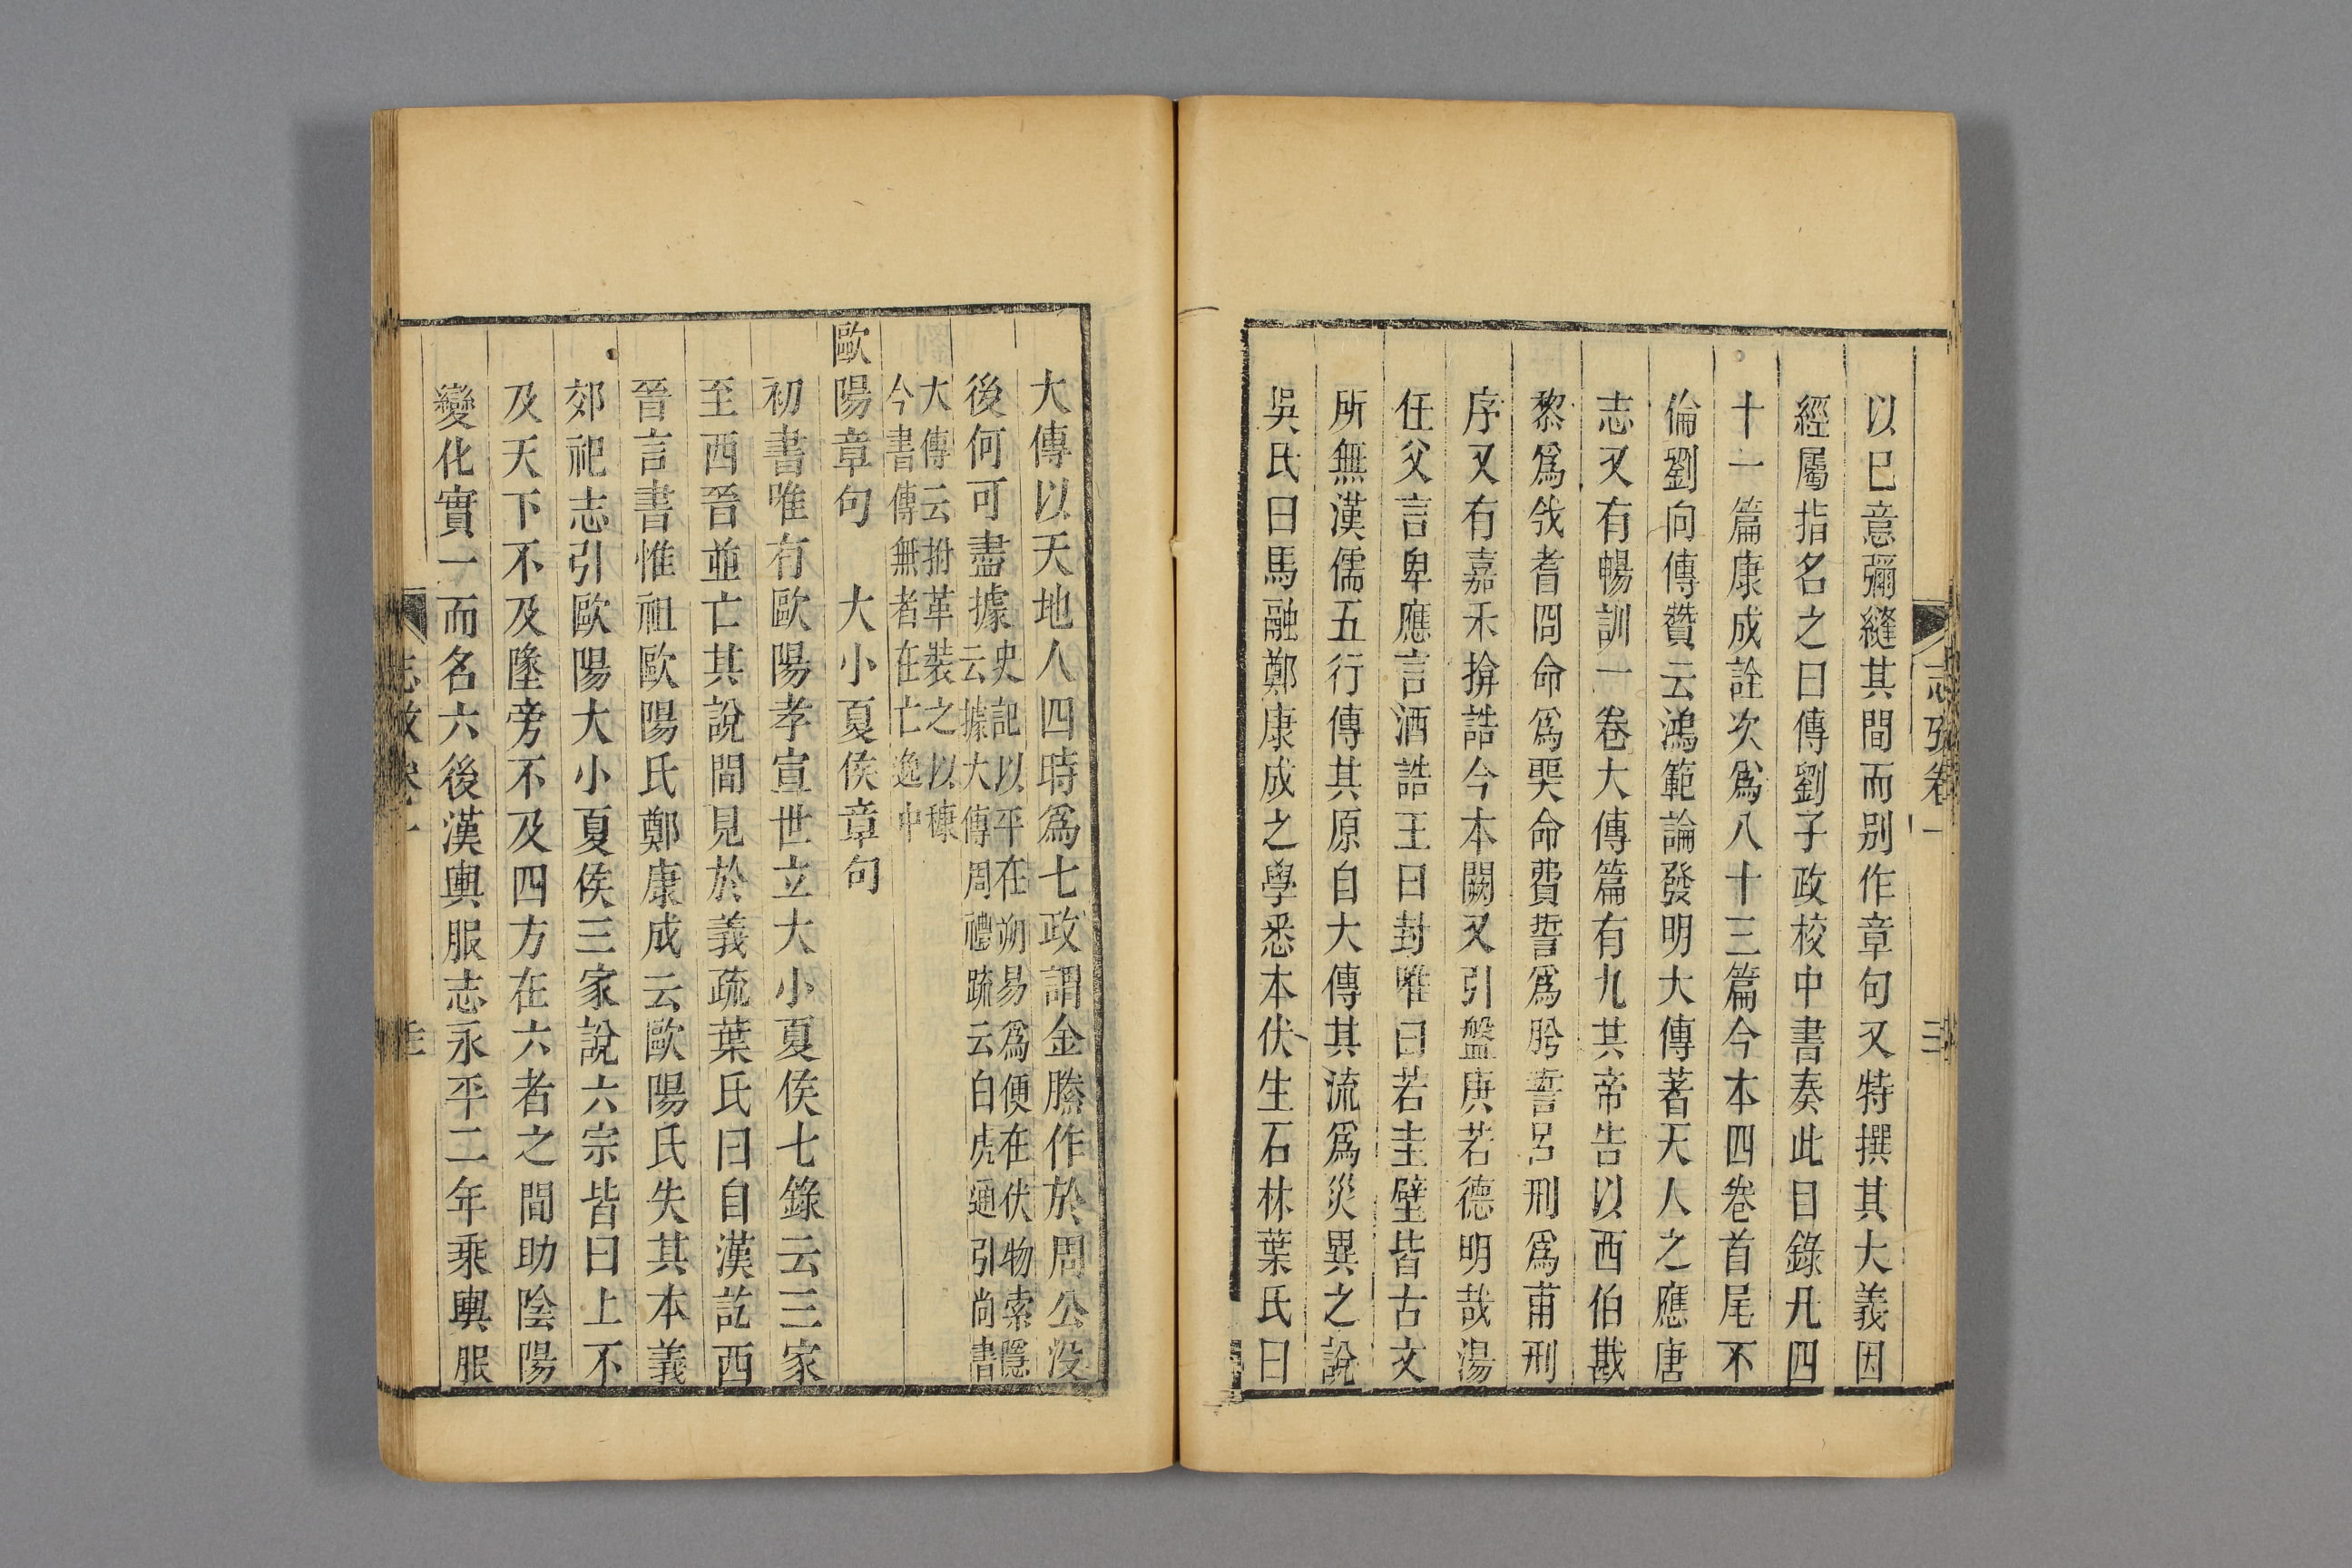 以已意彌縫其間而别作章句又特撰其大義因
經屬指名之曰傳劉子政校中書奏此目錄凡四
十一篇康成詮次爲八十三篇今本四卷首尾不
倫劉向傳贊云鴻範論發明大傳著天人之應唐
志又有暢訓一卷大傳篇有九共帝告以西伯戡
黎爲㦯耆冏命爲㷼命費誓爲肹誓呂刑爲甫刑
序又有嘉禾揜誥今本闕又引盤庚若德明哉湯
任父言卑應言酒誥王曰封唯曰若圭璧皆古文
所無漢儒五行傳其原自大傳其流爲災異之說
吳氏曰馬融鄭康成之學悉本伏生石林葉氏曰
大傳以天地人四時爲七政謂金縢作於周公没
後何可盡據
史記以平在朔易爲便在伏物索隱
云據大傳周禮疏云白虎通引尚書
大傳云拊革裝之以穅
今書傳無者在亡逸中
歐陽章句　大小夏侯章句
初書唯有歐陽孝宣世立大小夏侯七錄云三家
至西晉並亡其說間見於義疏葉氏曰自漢訖西
晉言書惟祖歐陽氏鄭康成云歐陽氏失其本義
郊祀志引歐陽大小夏侯三家說六宗皆曰上不
及天下不及墬旁不及四方在六者之間助陰陽
變化實一而名六後漢輿服志永平二年乘輿服